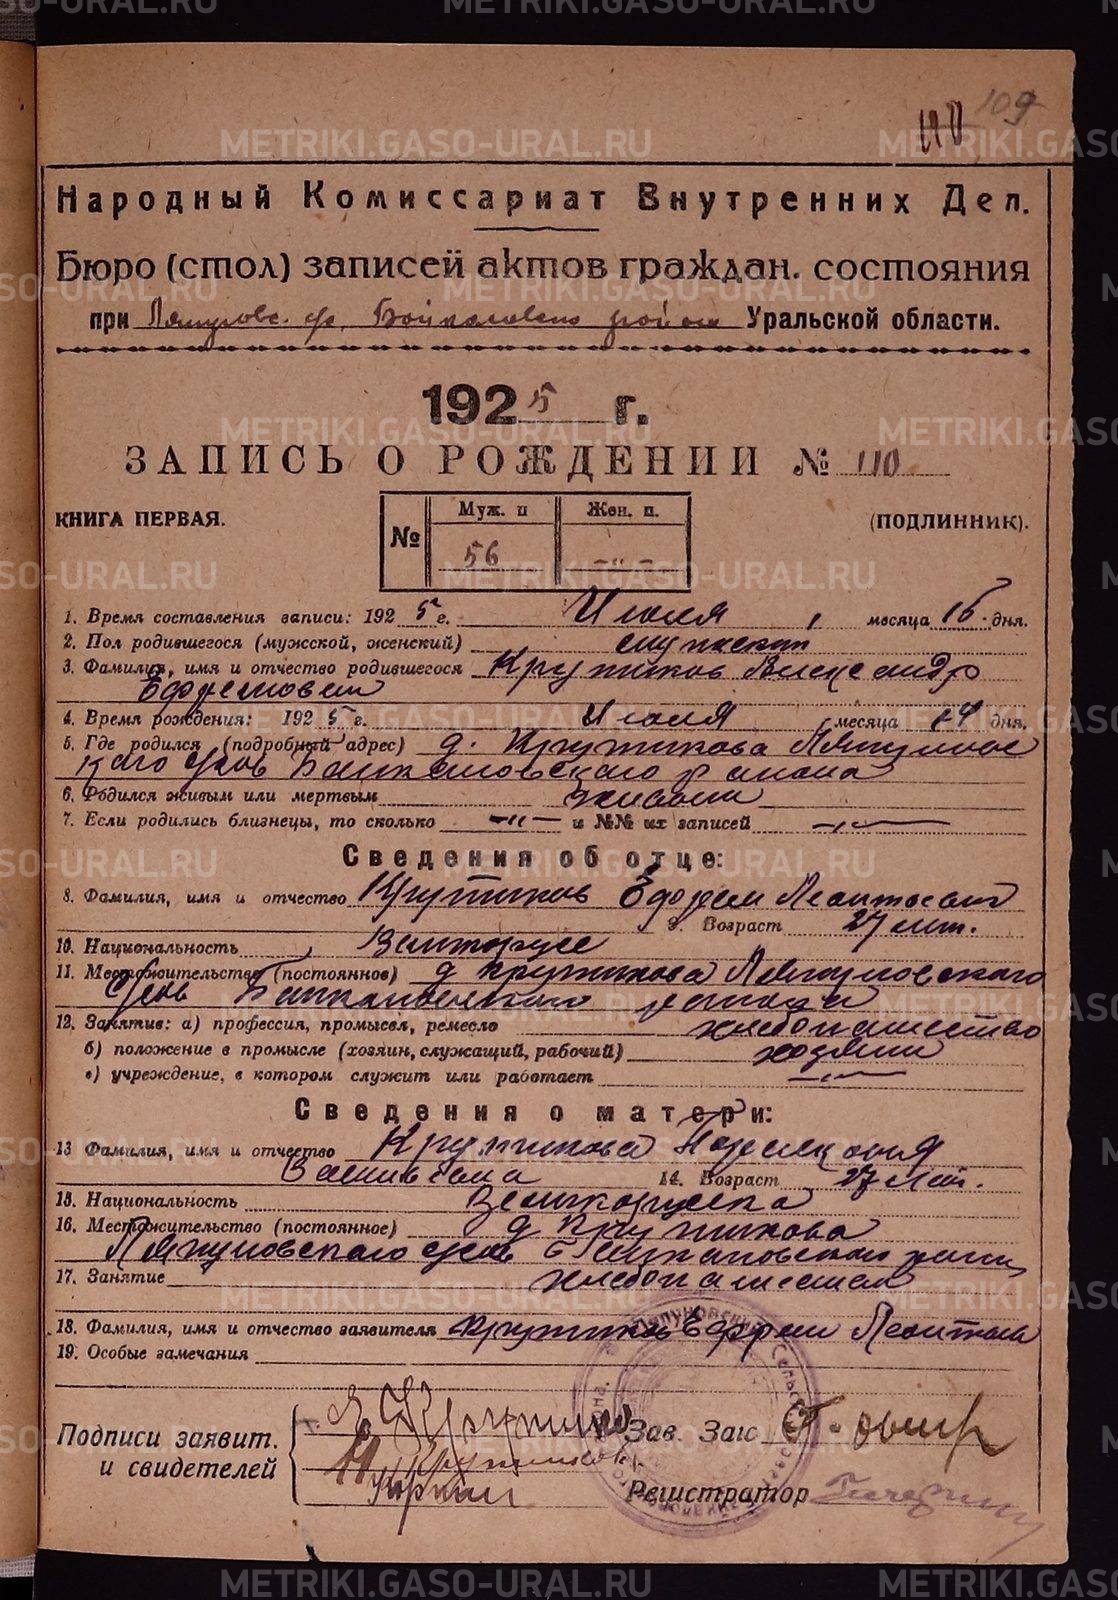 109
110
Народный Комиссариат Внутренних Дел.
Бюро (стол) записей актов граждан. состояния
при Ляпуновс. Байкаловско района Уральской области.
1925 г.
ЗАПИСЬ О РОЖДЕНИИ № 110
КНИГА ПЕРВАЯ. (ПОДЛИННИК).
№ Муж. п Жен. п.
56 — „ —
1. Время составления записи: 1925 г. Июля месяца 16 дня.
2. Пол родившегося (мужской, женский) мужской
3. Фамилия, имя и отчество родившегося Крутиков Александр
Ефремович
4. Время рождения: 1925 г. Июля месяца 14 дня.
5. Где родился (подробный адрес) д. Крутикова Ляпуновс
кого Байкаловского района
6. Родился живым или мертвым живым
7. Если родились близнецы, то сколько — „ — и №№ их записей — „ —
Сведения об отце:
8. Фамилия, имя и отчество Крутиков Ефрем Леонтьевич
9. Возраст 27 лет.
10. Национальность Великорусс
11. Местожительство (постоянное) д Крутикова Ляпуновского
Байкаловского района
12. Занятие: а) профессия, промысел, ремесло хлебопашество
б) положение в промысле (хозяин, служащий, рабочий) хозяин
в) учреждение, в котором служит или работает — „ —
Сведения о матери:
13 Фамилия, имя и отчество Крутикова
14. Возраст 27 лет.
15. Национальность Великорусска
16. Местожительство (постоянное) д Крутикова
Ляпуновского Байкаловского
17. Занятие
18. Фамилия, имя и отчество заявителя Крутиков Ефрем Леонтьев
19. Особые замечания
Подписи заявит. и свидетелей
Е Крутиков
Крутиков
Зав. Загс
Регистратор
METRIKI.GASO-URAL.RU